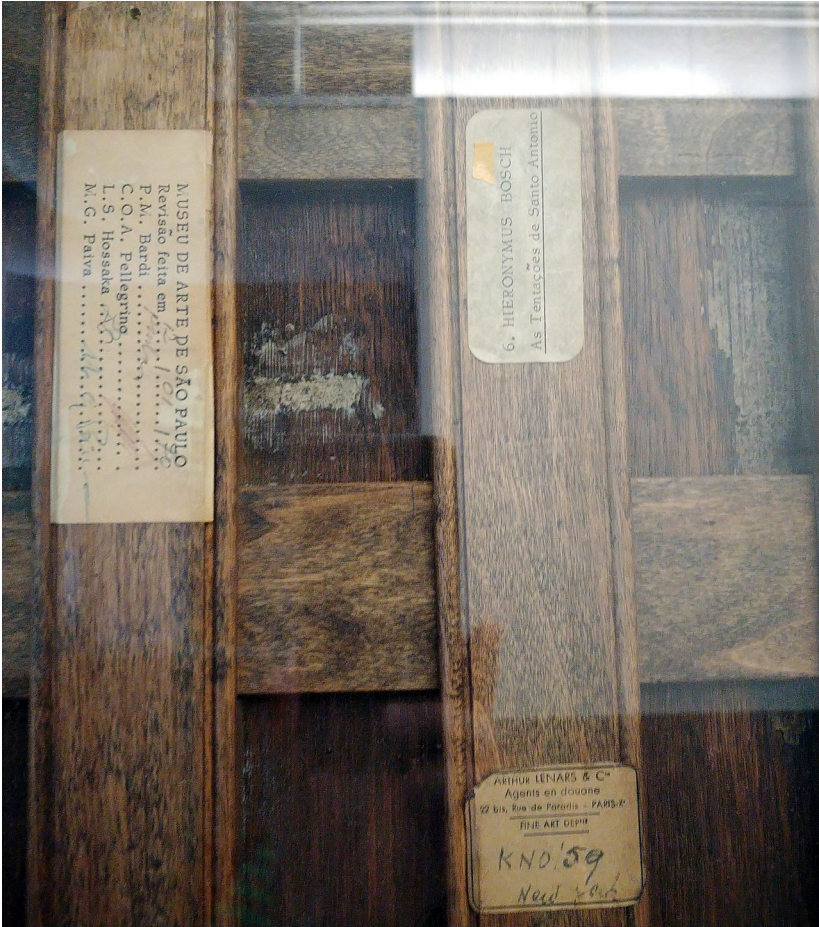 MUSEU DE ARTE DE SÃO PAULO
Revisão feita em
P.M. Bardi
C.O.A. Pellegrino
L.S. Hossaka
M.G. Paiva
6. HIERONYMUS BOSCH
As Tentações de Santo Antonio
ARTHUR LENARS & Cie
Agents en douane
22 bis, Rue de Paradis - PARIS-Xe
FINE ART DEPmt
KNO'59
New York